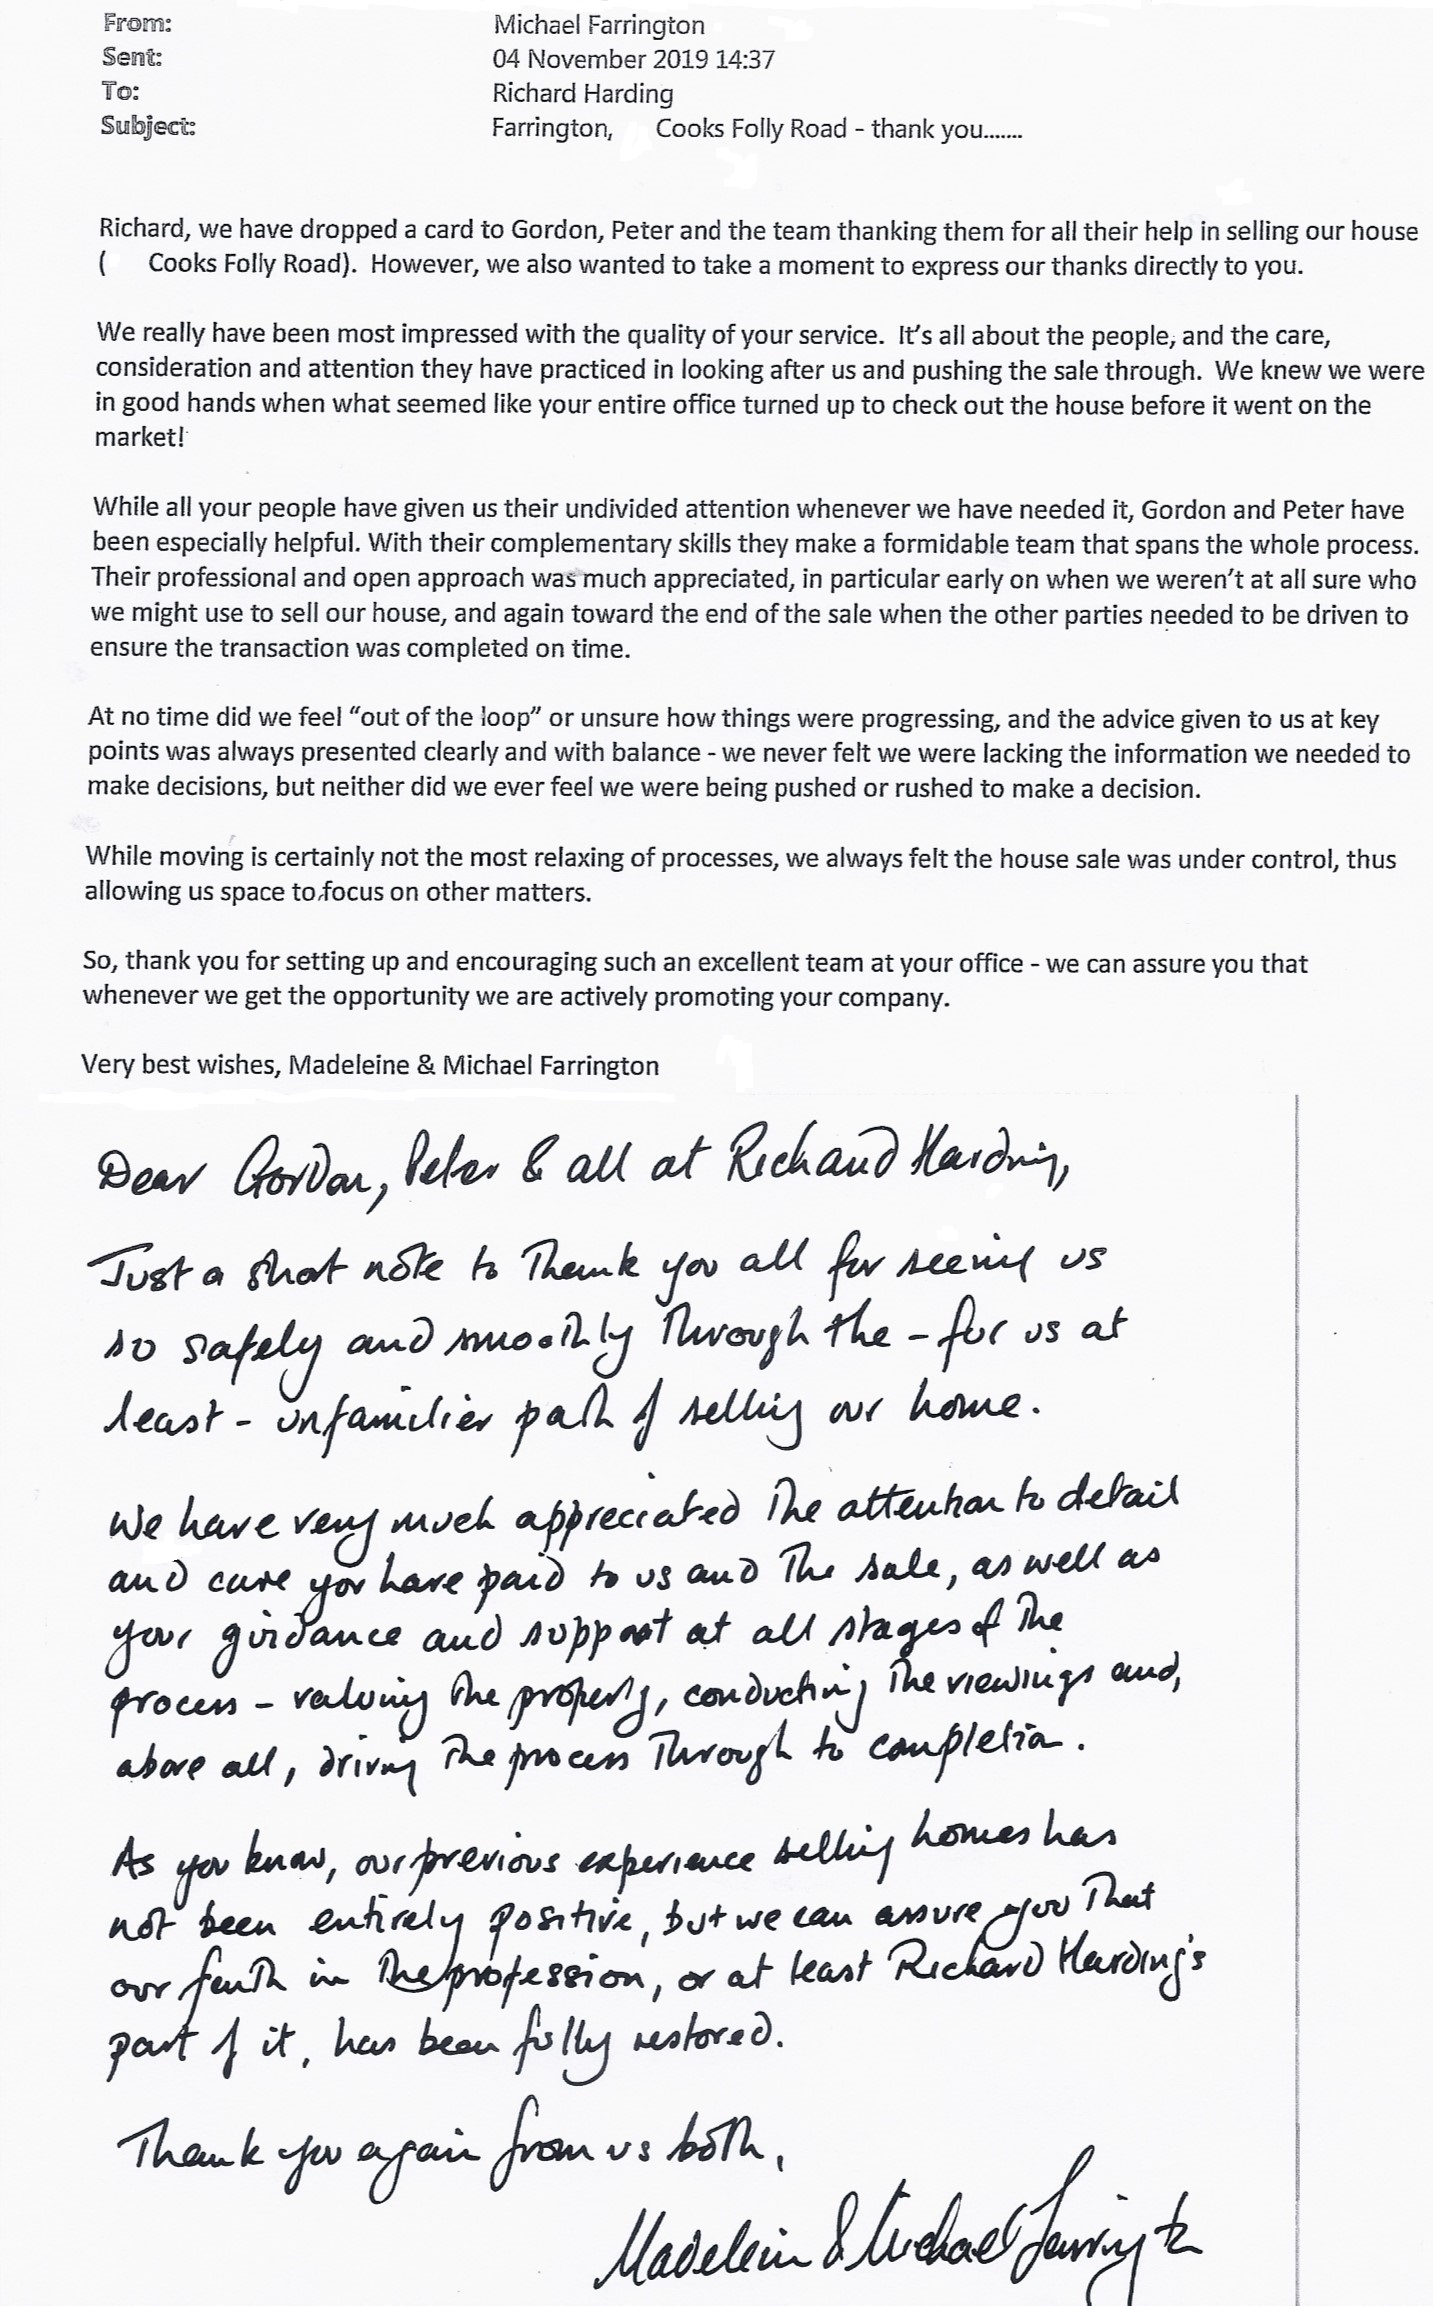 From: Michael Farrington
Sent: 04 November 2019 14:37
To: Richard Harding
Subject: Farrington, Cooks Folly Road - thank you.......
Richard, we have dropped a card to Gordon, Peter and the team thanking them for all their help in selling our house
( Cooks Folly Road). However, we also wanted to take a moment to express our thanks directly to you.
We really have been most impressed with the quality of your service. It's all about the people, and the care,
consideration and attention they have practiced in looking after us and pushing the sale through. We knew we were
in good hands when what seemed like your entire office turned up to check out the house before it went on the
market!
While all your people have given us their undivided attention whenever we have needed it, Gordon and Peter have
been especially helpful. With their complementary skills they make a formidable team that spans the whole process.
Their professional and open approach was much appreciated, in particular early on when we weren't at all sure who
we might use to sell our house, and again toward the end of the sale when the other parties needed to be driven to
ensure the transaction was completed on time.
At no time did we feel "out of the loop" or unsure how things were progressing, and the advice given to us at key
points was always presented clearly and with balance - we never felt we were lacking the information we needed to
make decisions, but neither did we ever feel we were being pushed or rushed to make a decision.
While moving is certainly not the most relaxing of processes, we always felt the house sale was under control, thus
allowing us space to focus on other matters.
So, thank you for setting up and encouraging such an excellent team at your office - we can assure you that
whenever we get the opportunity we are actively promoting your company.
Very best wishes, Madeleine & Michael Farrington
Dear Gordon, Peter & all at Richard Harding,
Just a short note to thank you all for seeing us
so safely and smoothly through the - for us at
least - unfamilier path of selling our home.
We have very much appreciated the attention to detail
and care you have paid to us and the sale, as well as
your guidance and support at all stages of the
process - valuing the property, conducting the viewings and,
above all, driving the process through to completion.
As you know, our previous experience selling homes has
not been entirely positive, but we can assure you that
our faith in the profession, or at least Richard Harding's
part of it, has been fully restored.
Thank you again from us both,
Madeleine & Michael Farrington